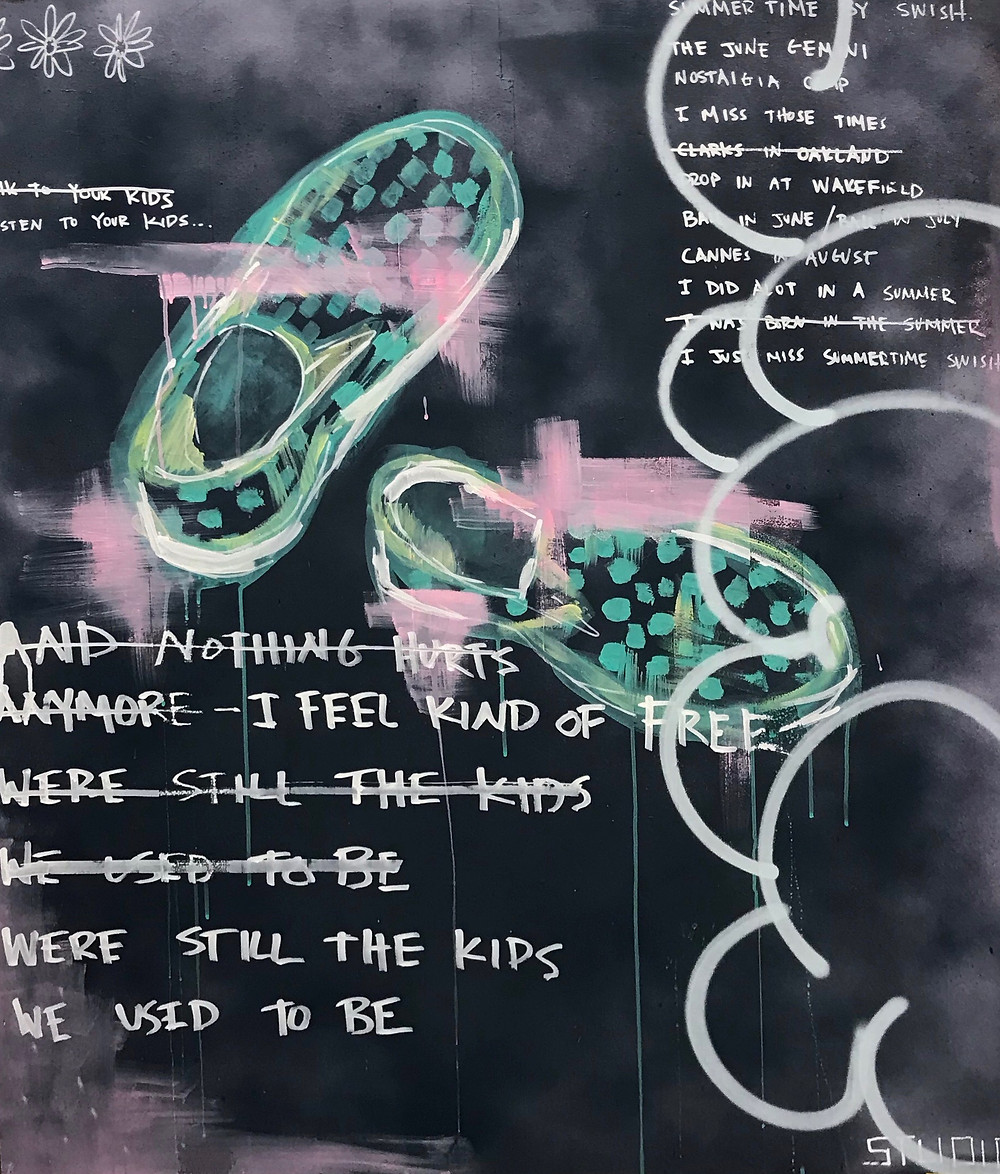 SUMMER TIME BY SWISH.
THE JUNE GEMINI
NOSTALGIA
I MISS THOSE TIMES
CLARKS IN OAKLAND
DROP IN AT WAKEFIELD
IN JUNE / IN JULY
CANNES IN AUGUST
I DID ALOT IN A SUMMER
I WAS BORN IN THE SUMMER
I JUST MISS SUMMERTIME SWISH
TO YOUR KIDS
STEN TO YOUR KIDS...
AND NOTHING HURTS
ANYMORE - I FEEL KIND OF FREE -
WERE STILL THE KIDS
WE USED TO BE
WERE STILL THE KIDS
WE USED TO BE
STUDIO